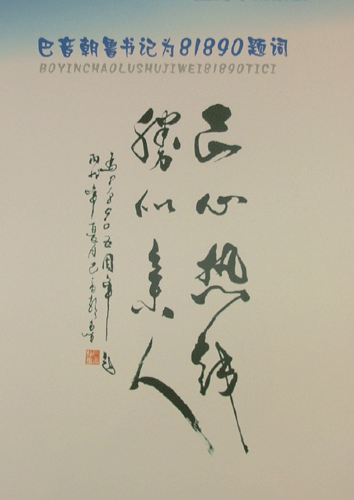 巴音朝鲁书记为81890题词
BOYINCHAOLUSHUJIWEI81890TICI
民心热线
勝似亲人
五周年
丙戌年夏月巴音朝鲁